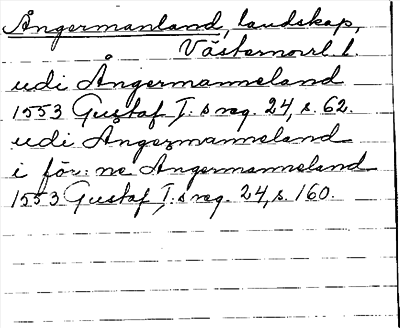 Ångermanland, landskap,
Västernorrl. l.
udi Ångermanneland
1553 Gustaf I:s reg. 24, s. 62.
udi Angermanneland
i för:ne Angermanneland
1553 Gustaf I:s reg. 24, s. 160.